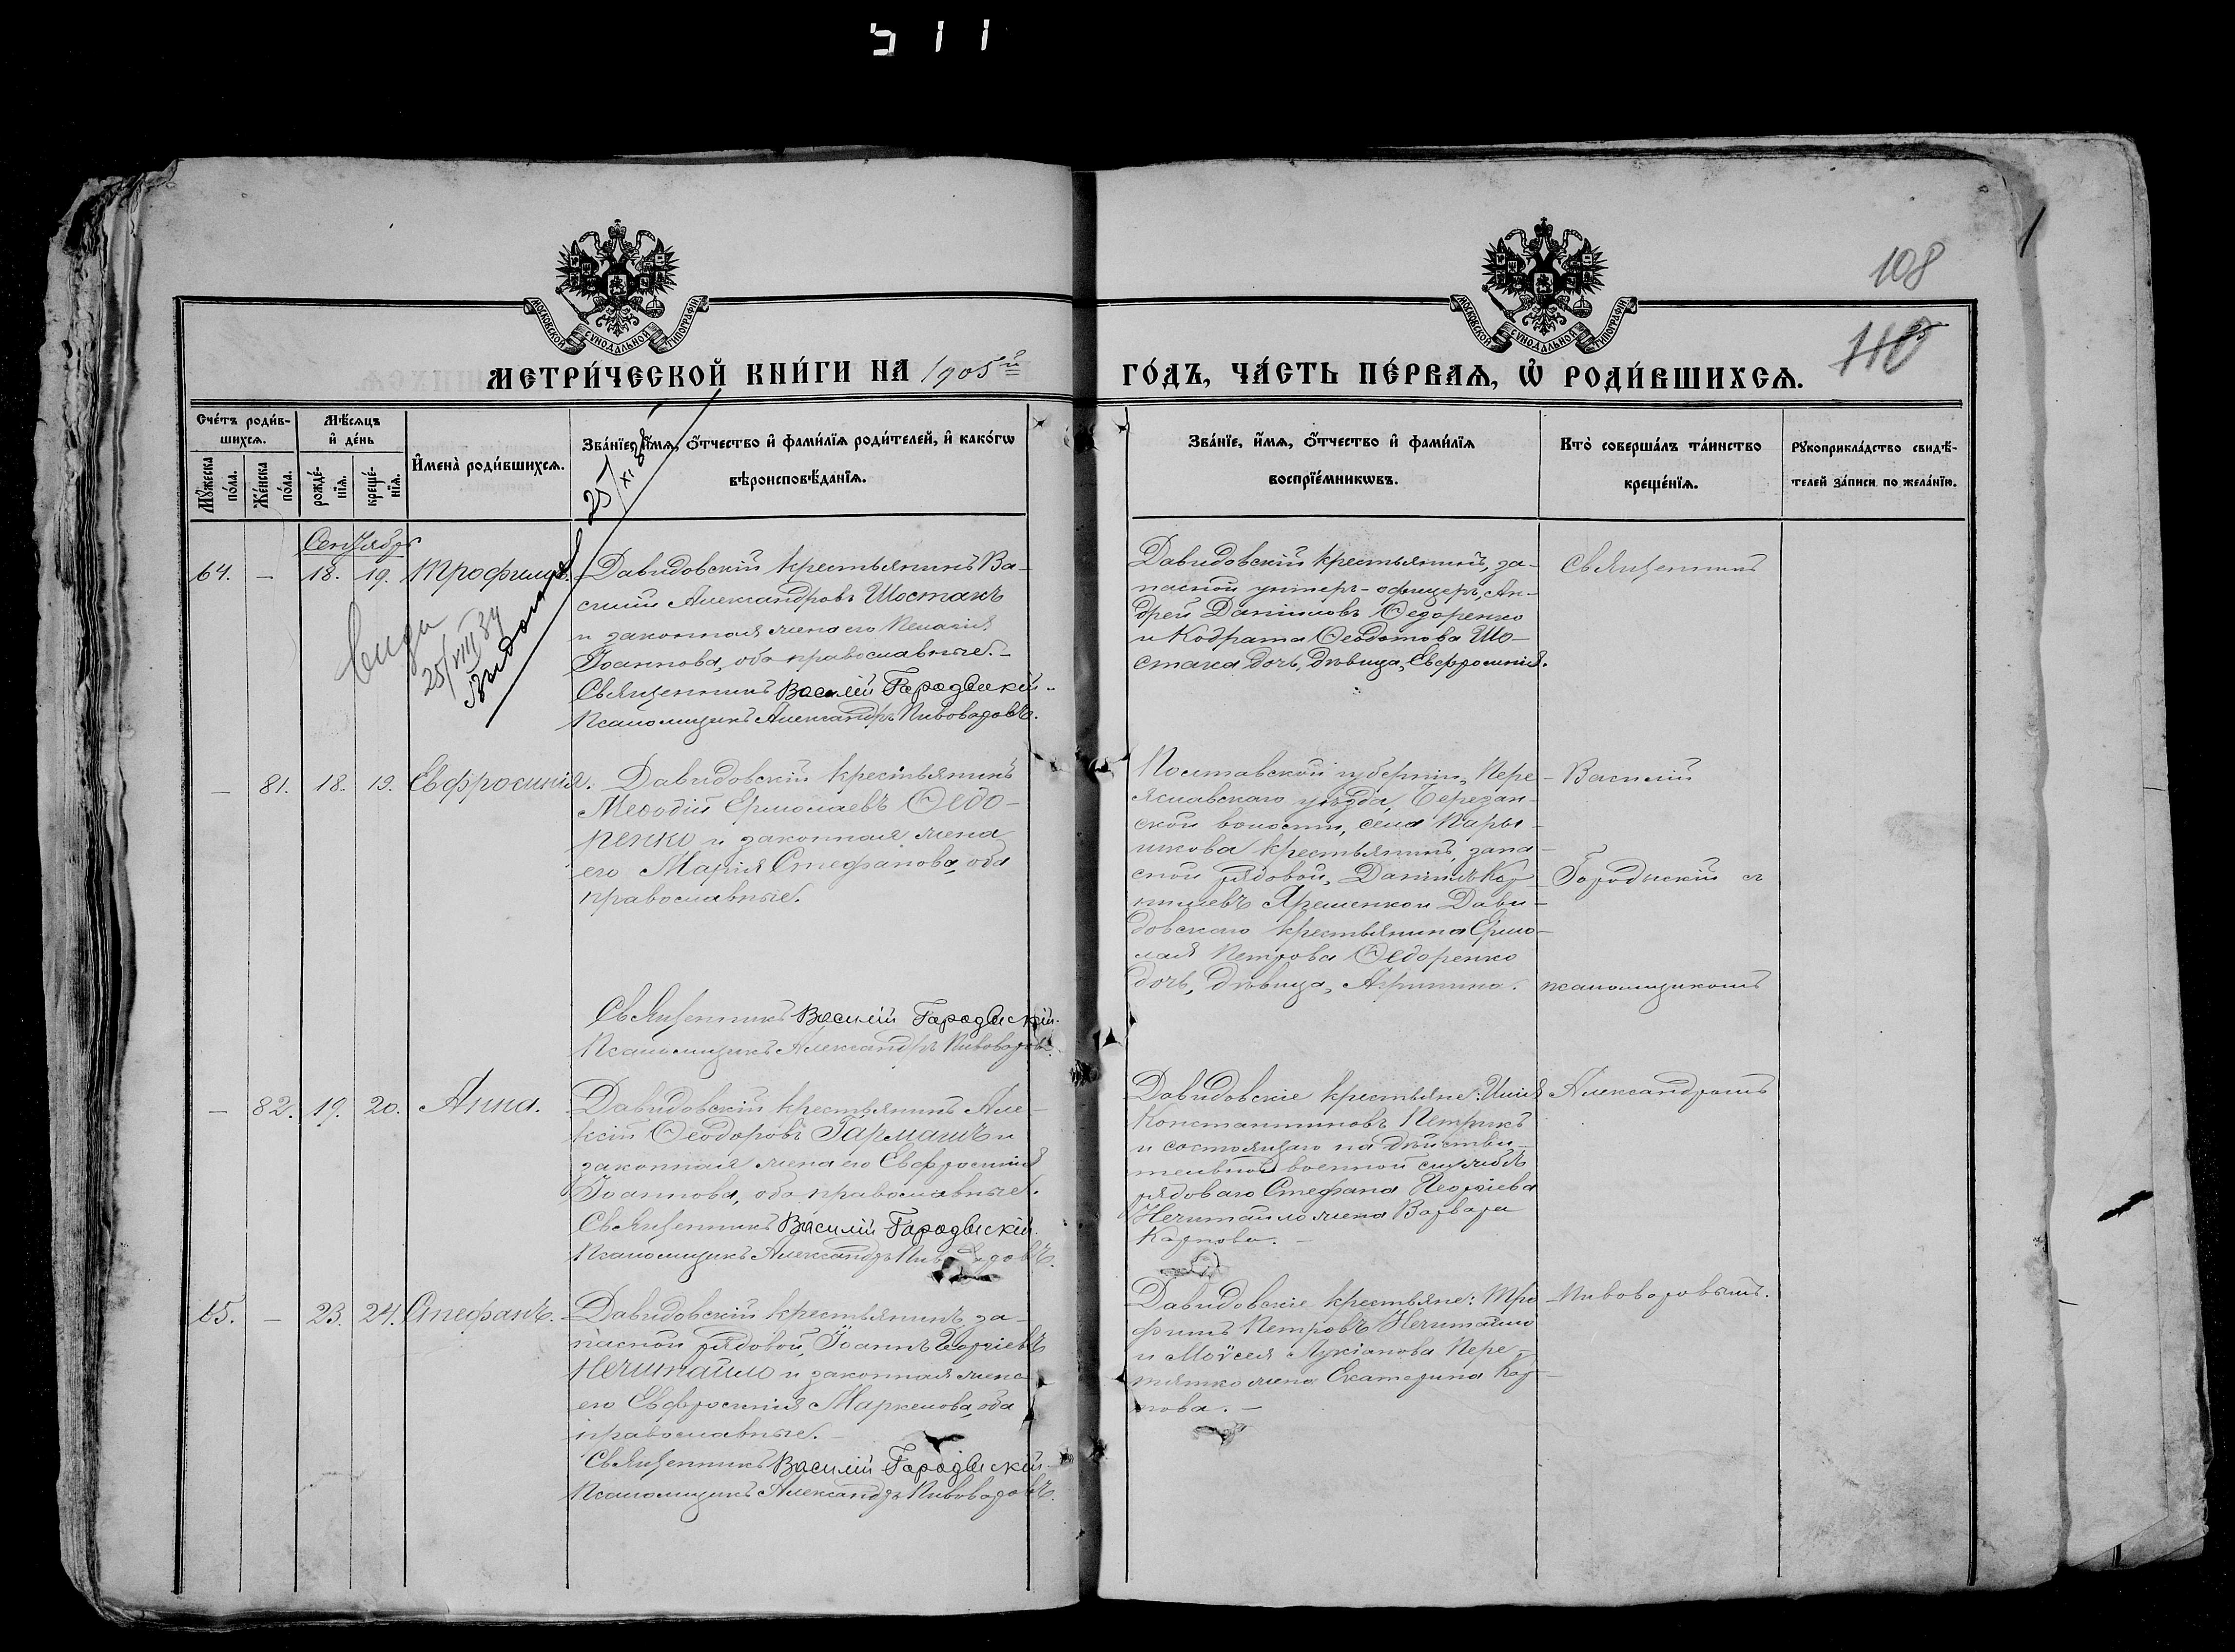 511
108
110
МОСКОВСКОЙ СѴНОДАЛЬНОЙ ТИПОГРАФІИ
МОСКОВСКОЙ СѴНОДАЛЬНОЙ ТИПОГРАФІИ
МЕТРИ́ЧЕСКОЙ КНИ́ГИ НА 1905й
ГО́ДЪ, ЧА́СТЬ ПЕ́РВАѦ, Ѡ҆ РОДИ́ВШИХСѦ.
Сче́тъ роди́в-
шихсѧ.
Мꙋ́жеска по́ла.
Же́нска по́ла.
Мѣ́сѧцъ
и҆ де́нь
рожде́-
нїѧ.
креще́-
нїѧ.
И҆мена̀ роди́вшихсѧ.
Зва́нїе, и҆́мѧ, ѻ҆́тчество и҆ фами́лїѧ роди́телей, и҆ како́гѡ
вѣроисповѣ́данїѧ.
Зва́нїе, и҆́мѧ, ѻ҆́тчество и҆ фами́лїѧ
воспрїе́мникѡвъ.
Кто̀ соверша́лъ та́инство
креще́нїѧ.
Рꙋкоприкла́дство свидѣ́-
телей за́писи по жела́нїю.
Сентябрь
64. — 18. 19. Трофимъ. Давидовскій крестьянинъ Ва-
силій Александровъ Шостакъ
и законная жена его Пелагія
Іоаннова, оба православные. —
Священникъ Василій Городыскій.
Псаломщикъ Александръ Пивоваровъ.
25/VIII 34
25/XI
Давидовскій крестьянинъ, за-
пасной унтеръ-офицеръ, Ан-
дрей Даніиловъ Ѳедоренко
и Кодрата Ѳеодотова Шо-
стака дочь, дѣвица, Евфросинія.
Священникъ
— 81. 18. 19. Евфросинія. Давидовскій крестьянинъ
Меѳодій Ермолаевъ Ѳедо-
ренко и законная жена
его Марія Стефанова, оба
православные.
Священникъ Василій Городыскій.
Псаломщикъ Александръ Пивоваровъ.
Полтавской губерніи, Пере-
яславскаго уѣзда, Березан-
ской волости, села Пары-
шкова крестьянинъ, запа-
сной рядовой, Даніилъ Кор-
нилевъ Яременко и Дави-
довскаго крестьянина Ермо-
лая Петрова Ѳедоренко
дочь, дѣвица, Агрипина.
Василій
Городыскій съ
псаломщикомъ
— 82. 19. 20. Анна. Давидовскій крестьянинъ Але-
ксій Ѳеодоровъ Гармашъ и
законная жена его Евфросинія
Іоаннова, оба православные.
Священникъ Василій Городыскій.
Псаломщикъ Александръ Пивоваровъ.
Давидовскіе крестьяне: Илія
Константиновъ Петрикъ
и состоящаго на дѣйстви-
тельной военной службѣ
рядоваго Стефана Георгіева
Нечитайло жена Варвара
Карпова. —
Александромъ
65. — 23. 24. Стефанъ. Давидовскій крестьянинъ, за-
пасной рядовой, Іоаннъ Георгіевъ
Нечитайло и законная жена
его Евфросинія Маркелова, оба
православные. —
Священникъ Василій Городыскій.
Псаломщикъ Александръ Пивоваровъ.
Давидовскіе крестьяне: Тро-
фимъ Петровъ Нечитайло
и Моѵсея Лукіанова Пере-
тятко жена Екатерина Кар-
пова. —
Пивоваровымъ.